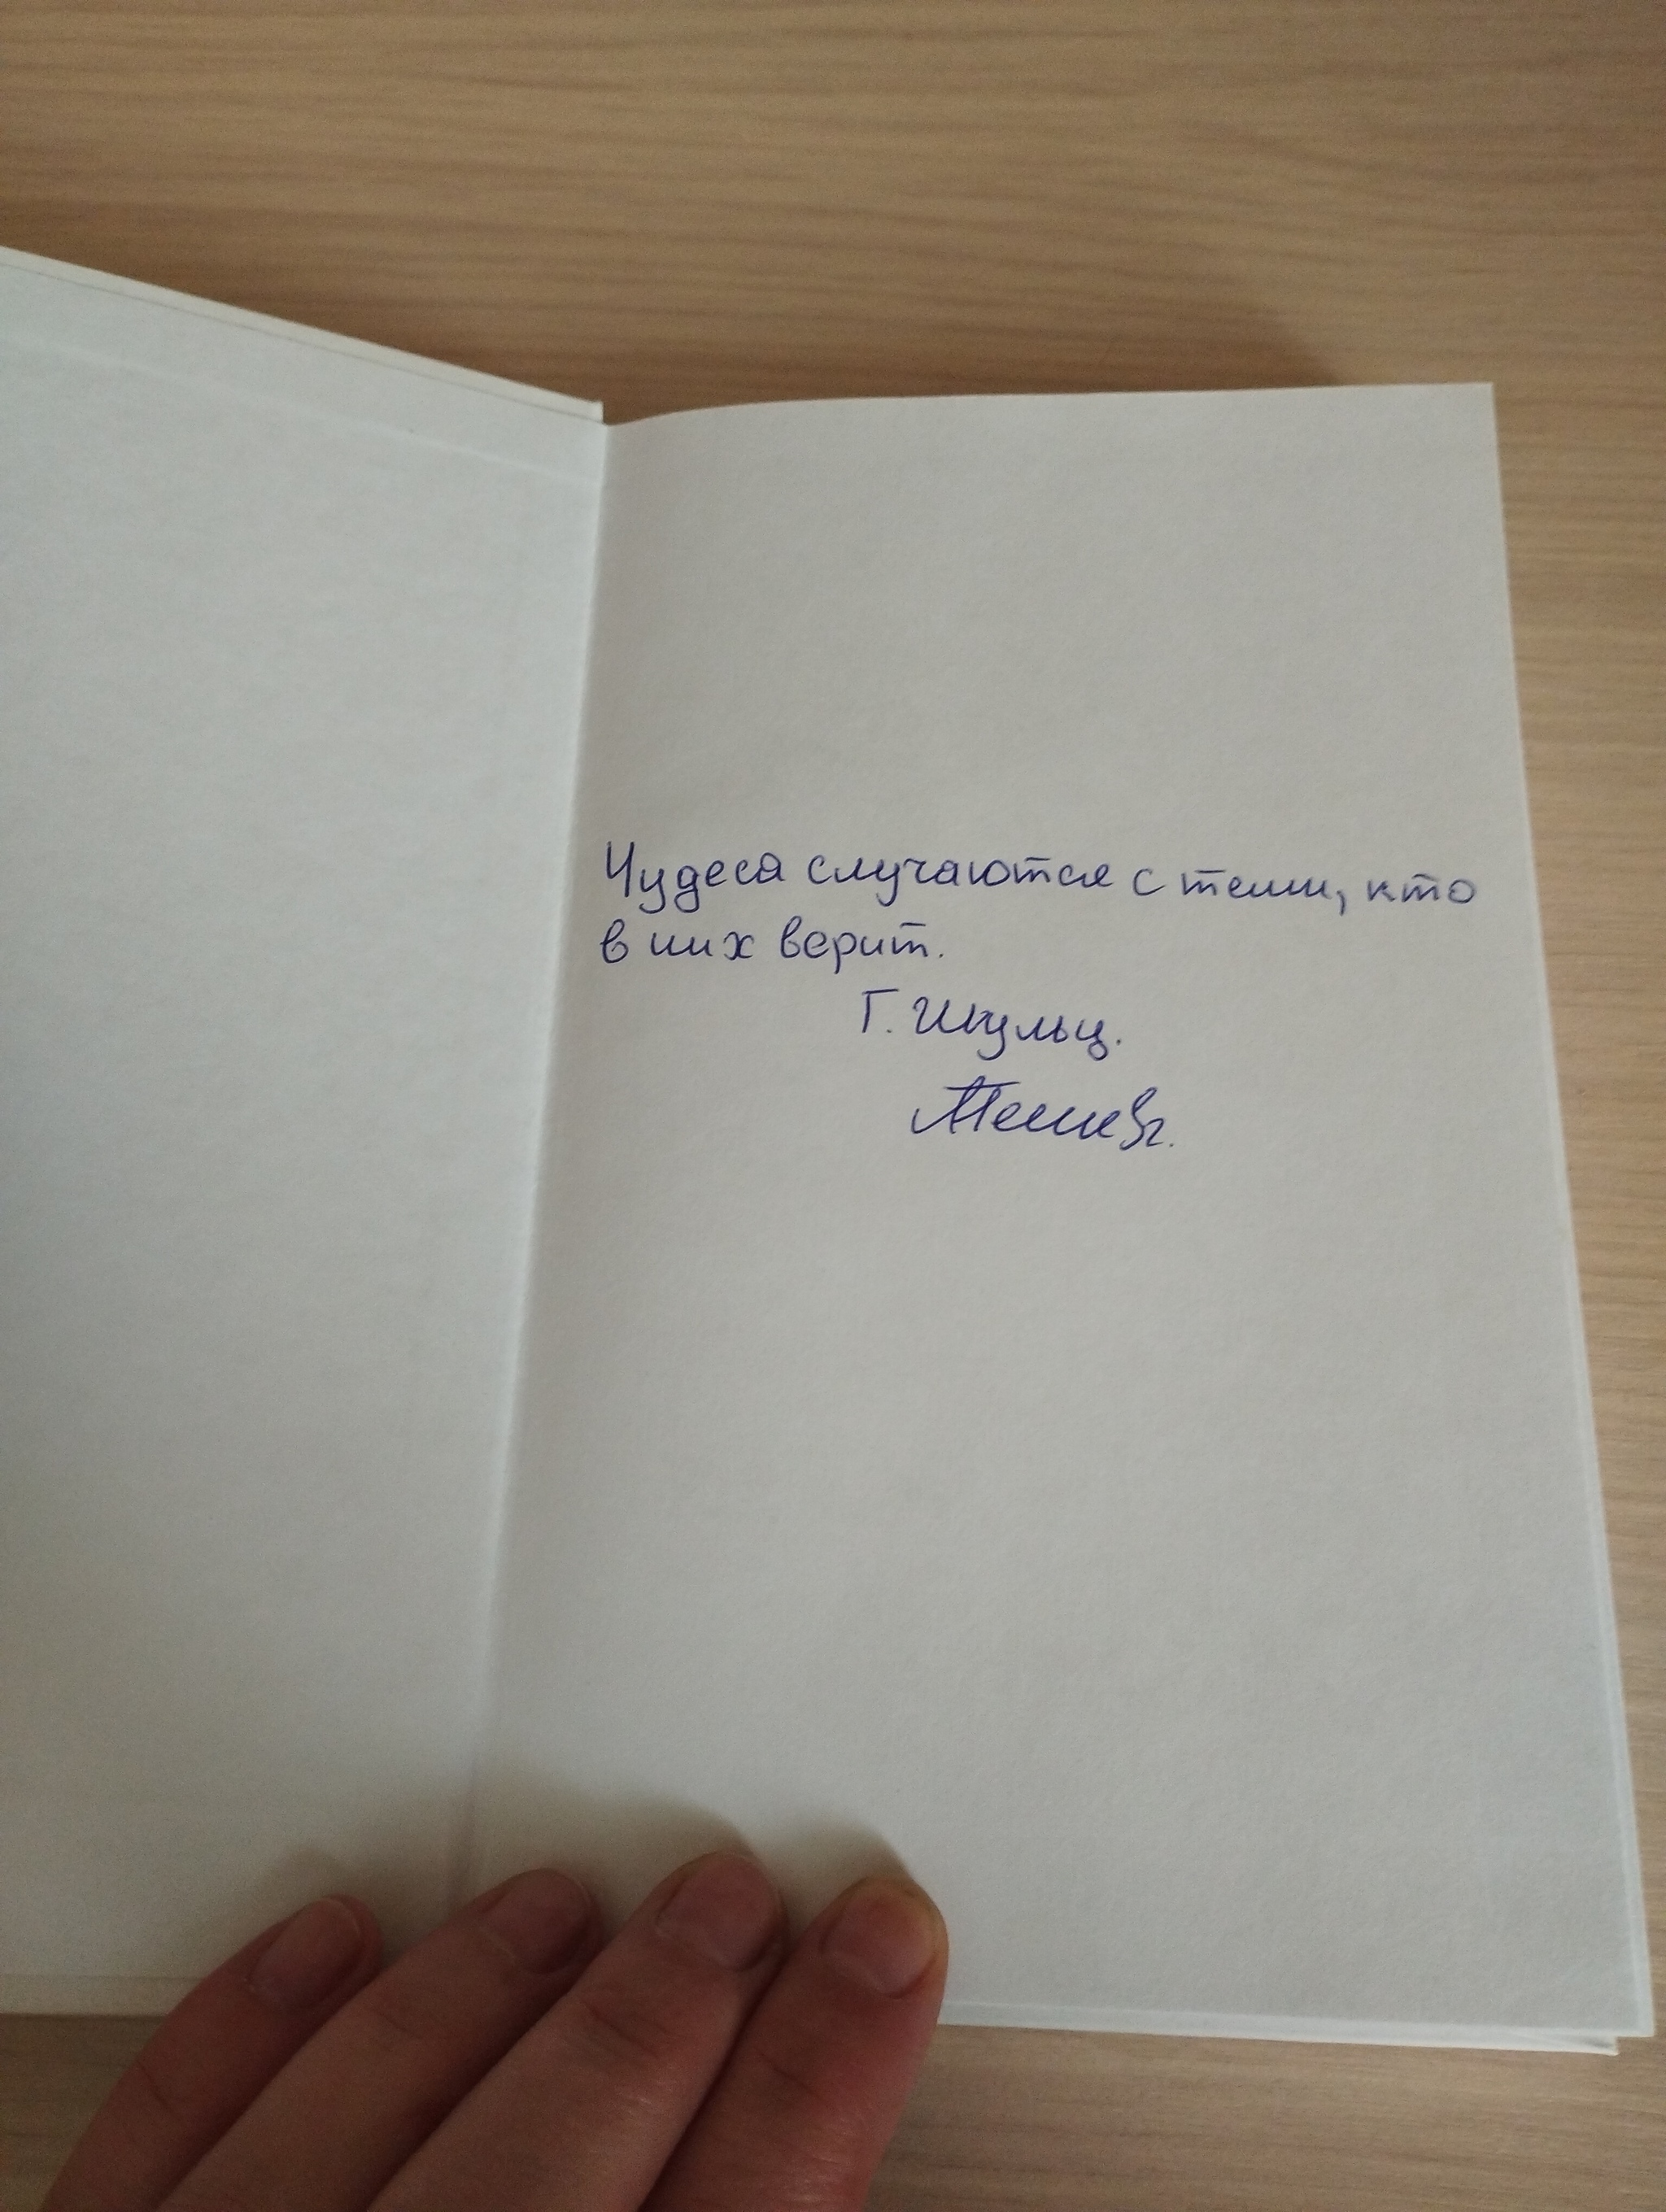 Чудеса случаются с теми, кто
в них верит.
Г. Шульц.